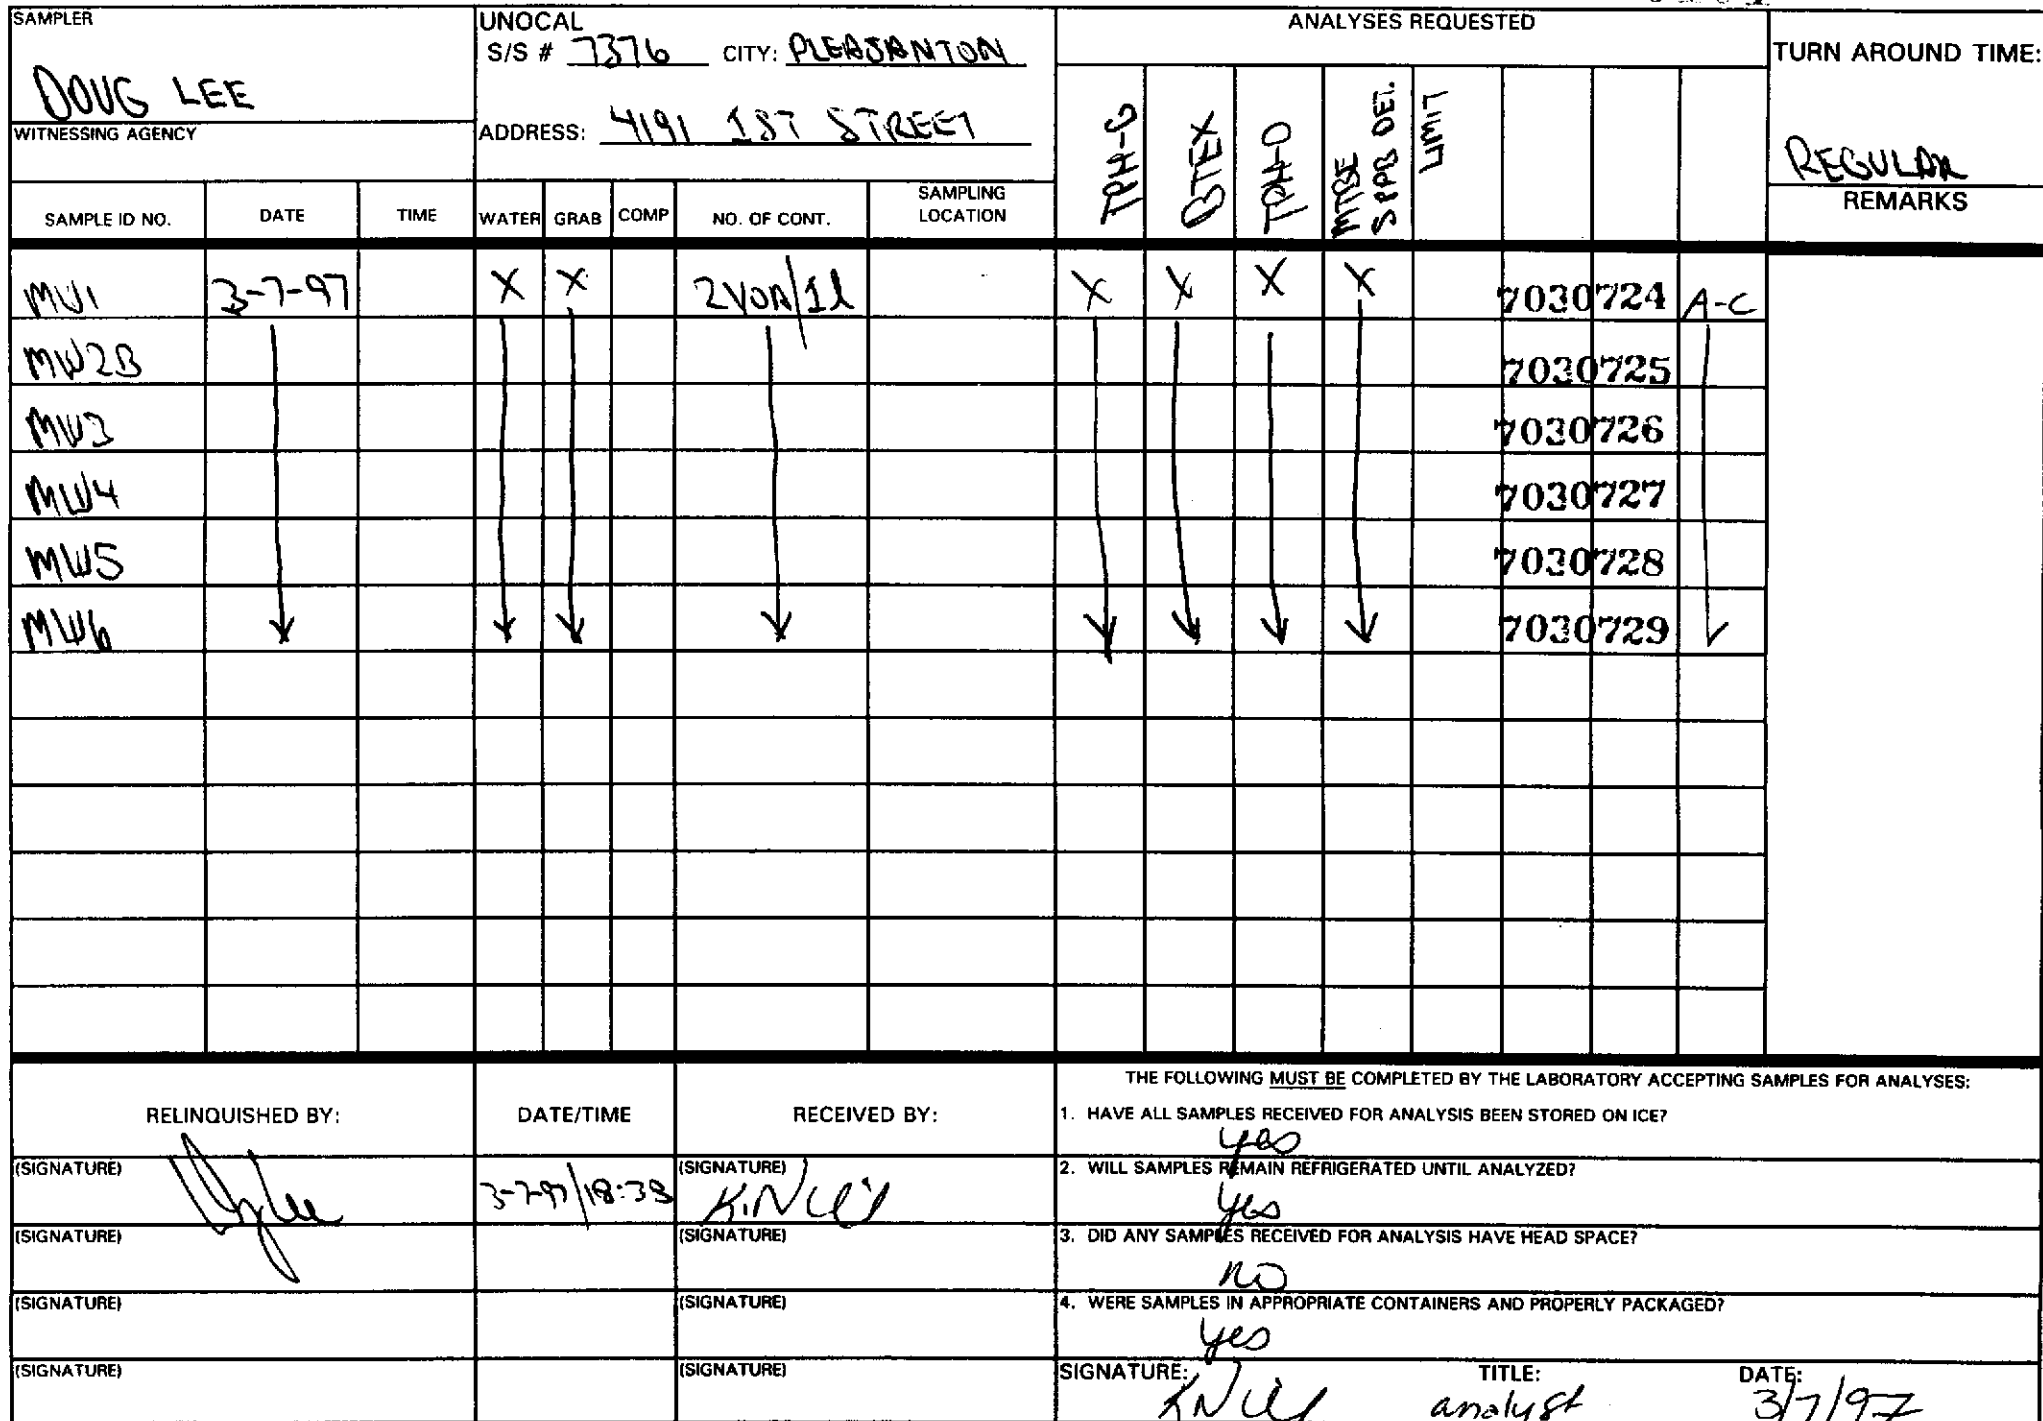 SAMPLER
DOUG LEE
WITNESSING AGENCY
UNOCAL
S/S # 7376 CITY: PLEASANTON
ADDRESS: 4191 1ST STREET
ANALYSES REQUESTED
TURN AROUND TIME:
REGULAR
REMARKS
SAMPLE ID NO. DATE TIME WATER GRAB COMP NO. OF CONT. SAMPLING LOCATION TPH-G BTEX TPH-D MTBE 5PPB DET. LIMIT
MW1 3-7-97 X X 2VOA/1l X X X X 7030724 A-C
MW2B 7030725
MW3 7030726
MW4 7030727
MW5 7030728
MW6 7030729
RELINQUISHED BY: DATE/TIME RECEIVED BY:
(SIGNATURE) 3-7-97/18:38 (SIGNATURE)
(SIGNATURE) (SIGNATURE)
(SIGNATURE) (SIGNATURE)
(SIGNATURE) (SIGNATURE)
THE FOLLOWING MUST BE COMPLETED BY THE LABORATORY ACCEPTING SAMPLES FOR ANALYSES:
1. HAVE ALL SAMPLES RECEIVED FOR ANALYSIS BEEN STORED ON ICE?
yes
2. WILL SAMPLES REMAIN REFRIGERATED UNTIL ANALYZED?
yes
3. DID ANY SAMPLES RECEIVED FOR ANALYSIS HAVE HEAD SPACE?
no
4. WERE SAMPLES IN APPROPRIATE CONTAINERS AND PROPERLY PACKAGED?
yes
SIGNATURE: TITLE: DATE:
analyst 3/7/97